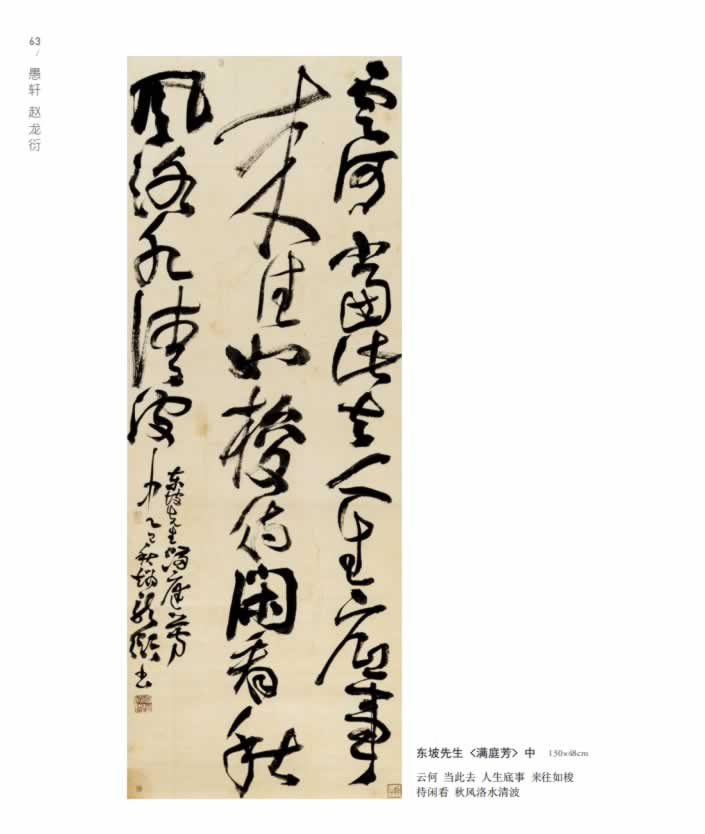 63
/
愚轩 赵龙衍
雲何當此去人生底事
来往如梭待闲看秋
風洛水清波
东坡先生满庭芳
中乙巳秋
书
东坡先生〈满庭芳〉中 130×48cm
云何 当此去 人生底事 来往如梭
待闲看 秋风洛水清波